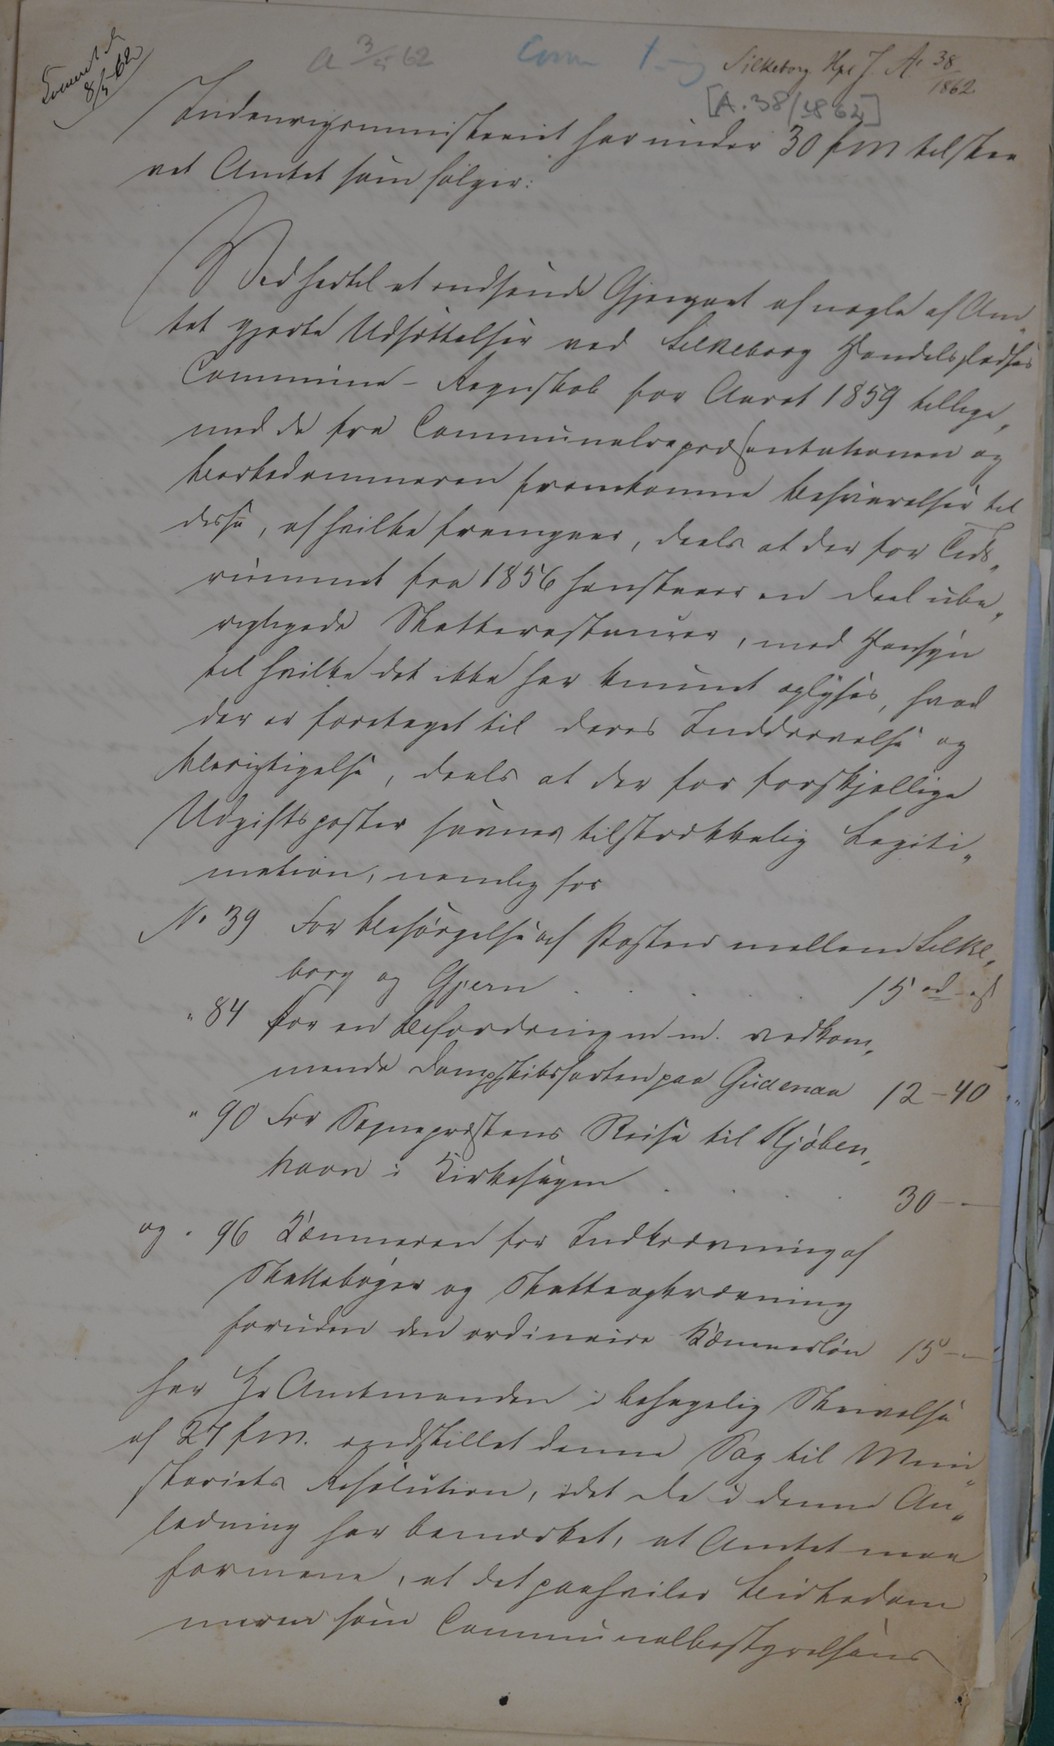 8/5 62
A 3/5 62
Silkeborg Hpl J. A. 38/1862
[A. 38/1862]
Indenrigsministeriet har under 30 f M tilskre
vet Amtet som følger:
Ved hertil at indsende Gjenpart af nogle af Am„
tet gjorte Udsættelser ved Silkeborg Handelsplads's
Commune-Regnskab for Aaret 1859 tillige„
med de fra Communalrepræsentationen og
Birkedommeren fremkomne Besvarelser til
disse, af hvilke fremgaaer, deels at der for Tids„
rummet fra 1856 henstaaer en Deel ube„
rigtigede Skatterestancer, med Hensyn
til hvilke det ikke har kunnet oplyses, hvad
der er foretaget til deres Inddrivelse og
Berigtigelse, deels at der for forskjellige
Udgiftsposter savnes tilstrækkelig Legiti„
mation, nemlig for
No 39 For Besørgelse af Posten mellem Silke„
borg og Gjern . . . . 15 rd - s
" 84 For en Befordring m m. vedkom„
mende Dampskibsfarten paa Gudenaa 12 - 40
" 90 For Sognepræstens Reise til Kjøben„
havn i Kirkesagen . . . 30 - -
og " 96 Kæmneren for Indkrævning af
Skattebøger og Skatteopkrævning
foruden den ordinaire Kæmnerløn 15 - -
har Hr Amtmanden i behagelig Skrivelse
af 27 f M. indstillet denne Sag til Mini„
steriets Resolution, idet De i denne An„
ledning har bemærket, at Amtet maa
formene, at det paahviler Birkedom
meren som Communalbestyrelsens